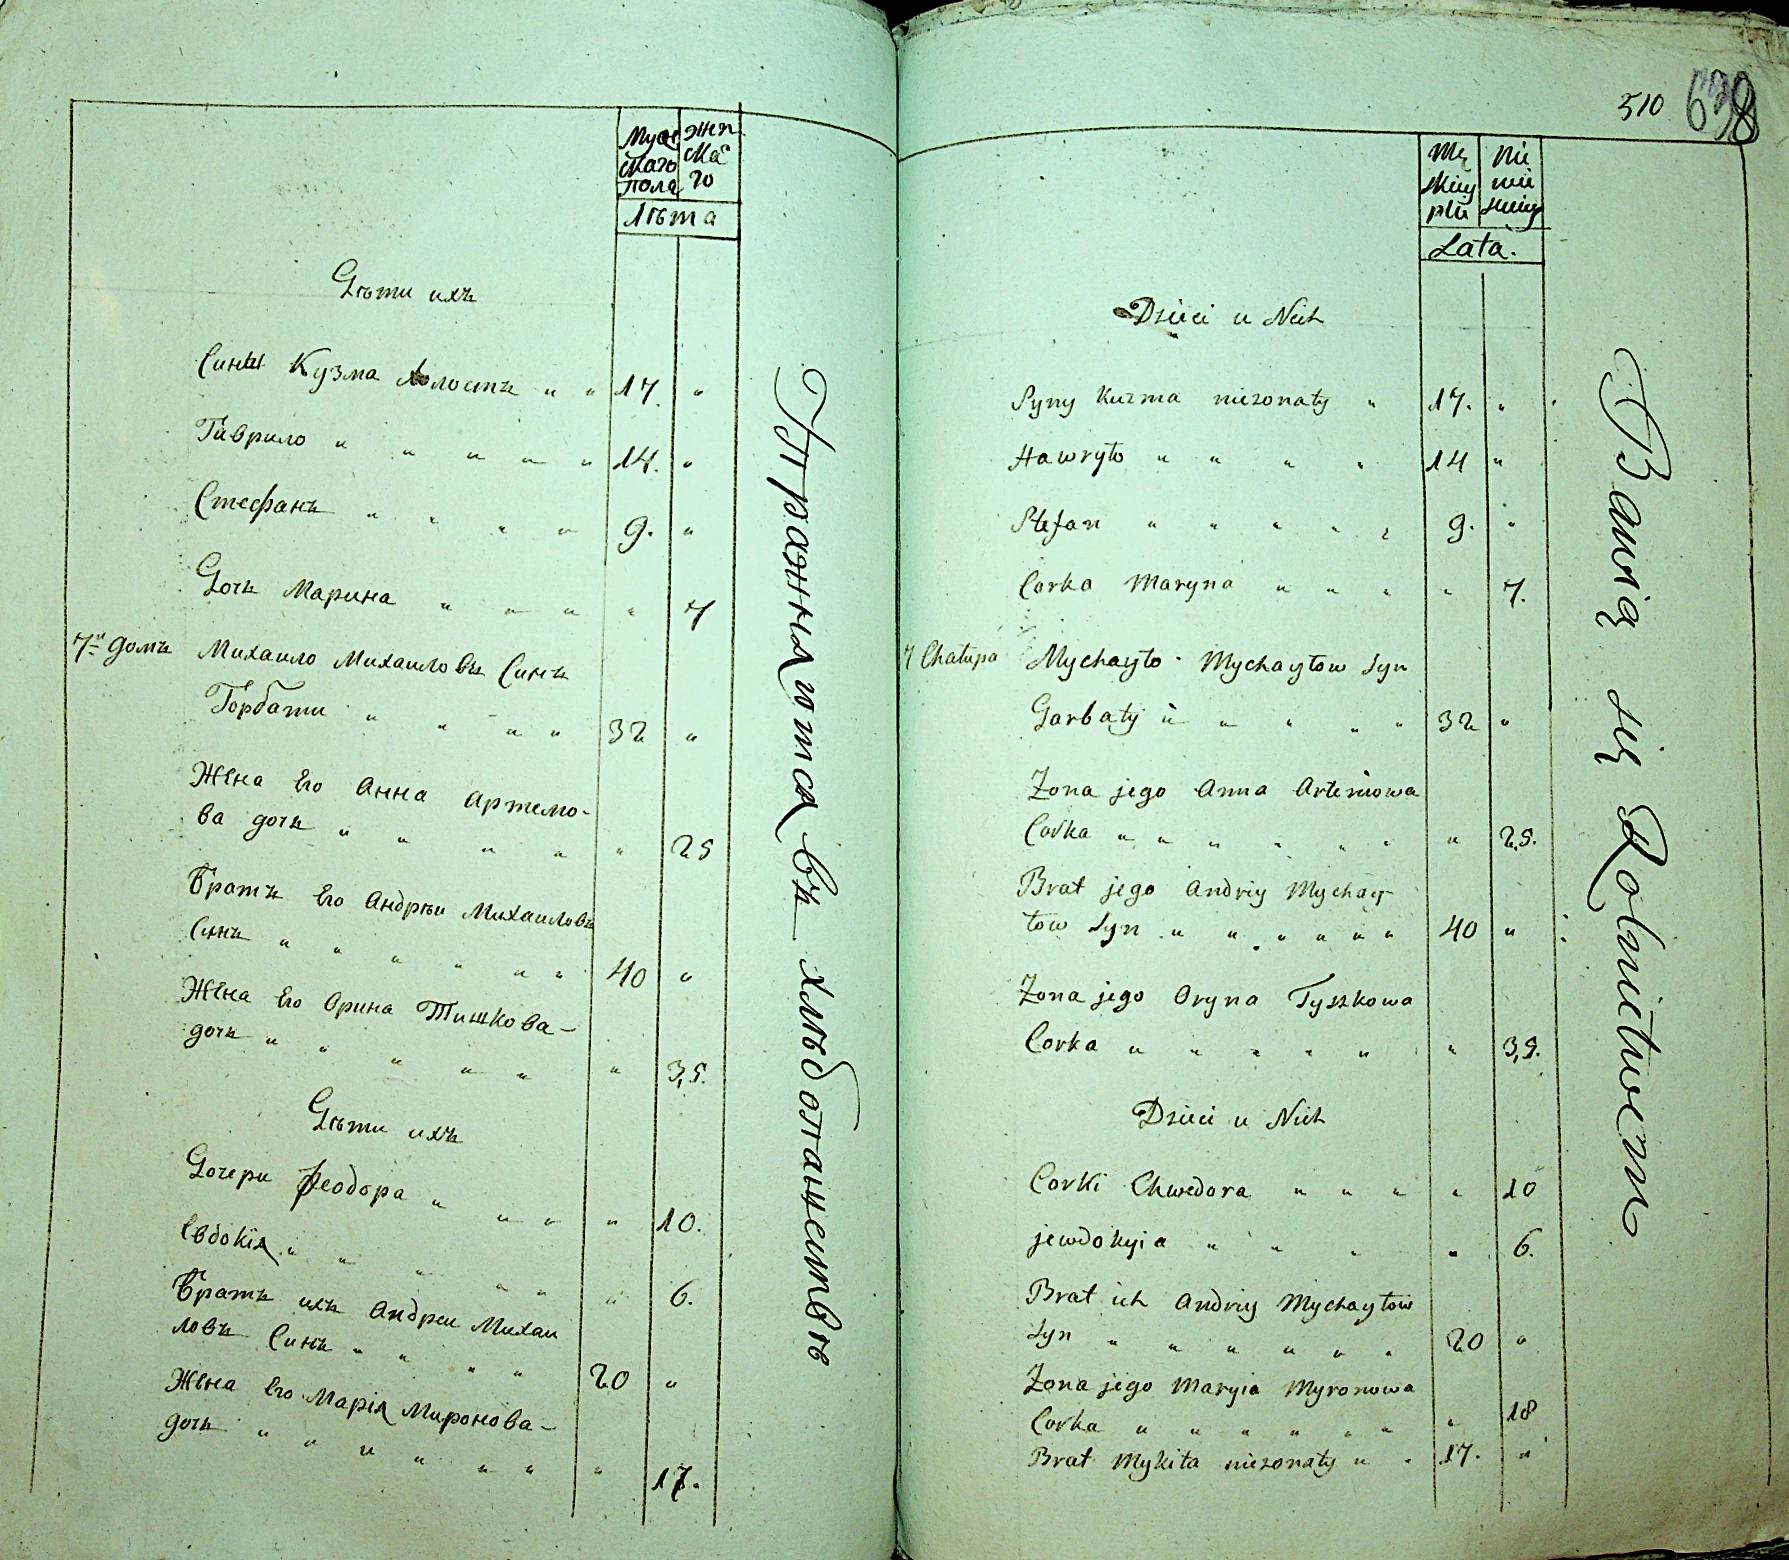 Мужескаго пола
Женскаго
Лѣта
Дѣти ихъ
Сини Кузма холостъ " " 17. "
Гаврило " " " " " 14. "
Стефанъ " " " " 9. "
Дочь Марина " " " " 7
7й домъ Михаило Михаиловъ Синъ
Горбати " " " " 32 "
Жена Его Анна Артемо-
ва дочь " " " " " 25
Братъ Его Андрѣи Михаиловъ
Синъ " " " " " " 40 "
Жена Его Орина Тишкова-
дочь " " " " " " 35.
Дѣти ихъ
Дочери Феодора " " " " 10.
Евдокія " " " " " " 6.
Братъ ихъ Андреи Михаи
ловъ Синъ " " " " 20 "
Жена Его Марія Миронова-
дочь " " " " " " " 17.
Упражняются въ хлѣбопашествѣ
510 638
Męskiey płci
Niewieściey
Lata.
Dzieci u Nich
Syny Kuzma niezonaty " 17. "
Hawryło " " " " 14 "
Stefan " " " " " 9. "
Corka Maryna " " " " 7.
7 Chałupa Mychayło Mychayłow Syn
Garbaty " " " " " 32 "
Zona jego Anna Artemowa
Corka " " " " " " " 25.
Brat jego Andriy Mychay
łow Syn " " " " " " 40 "
Zona jego Oryna Tyszkowa
Corka " " " " " " 35.
Dzieci u Nich
Corki Chwedora " " " " 10
jewdokyia " " " " 6.
Brat ich Andriy Mychayłow
Syn " " " " " " 20 "
Zona jego Maryia Myronowa
Corka " " " " " " " 18
Brat Mykita niezonaty " " 17. "
Bawią się Rolnictwem